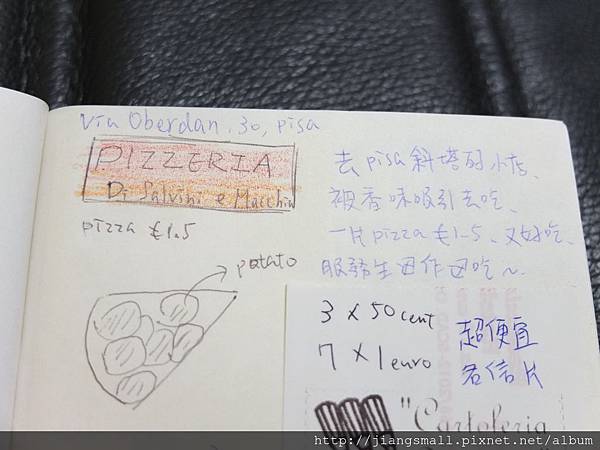 Via Oberdan, 30, pisa
PIZZERIA
Di Salvini e Macchia
pizza €1.5
potato
去pisa斜塔的小店、
被香味吸引去吃、
一片pizza €1.5、又好吃、
服務生边作边吃~
3 x 50cent
7 x 1 euro
超便宜
名信片
"Cartoleria
http://jiangsmall.pixnet.net/album